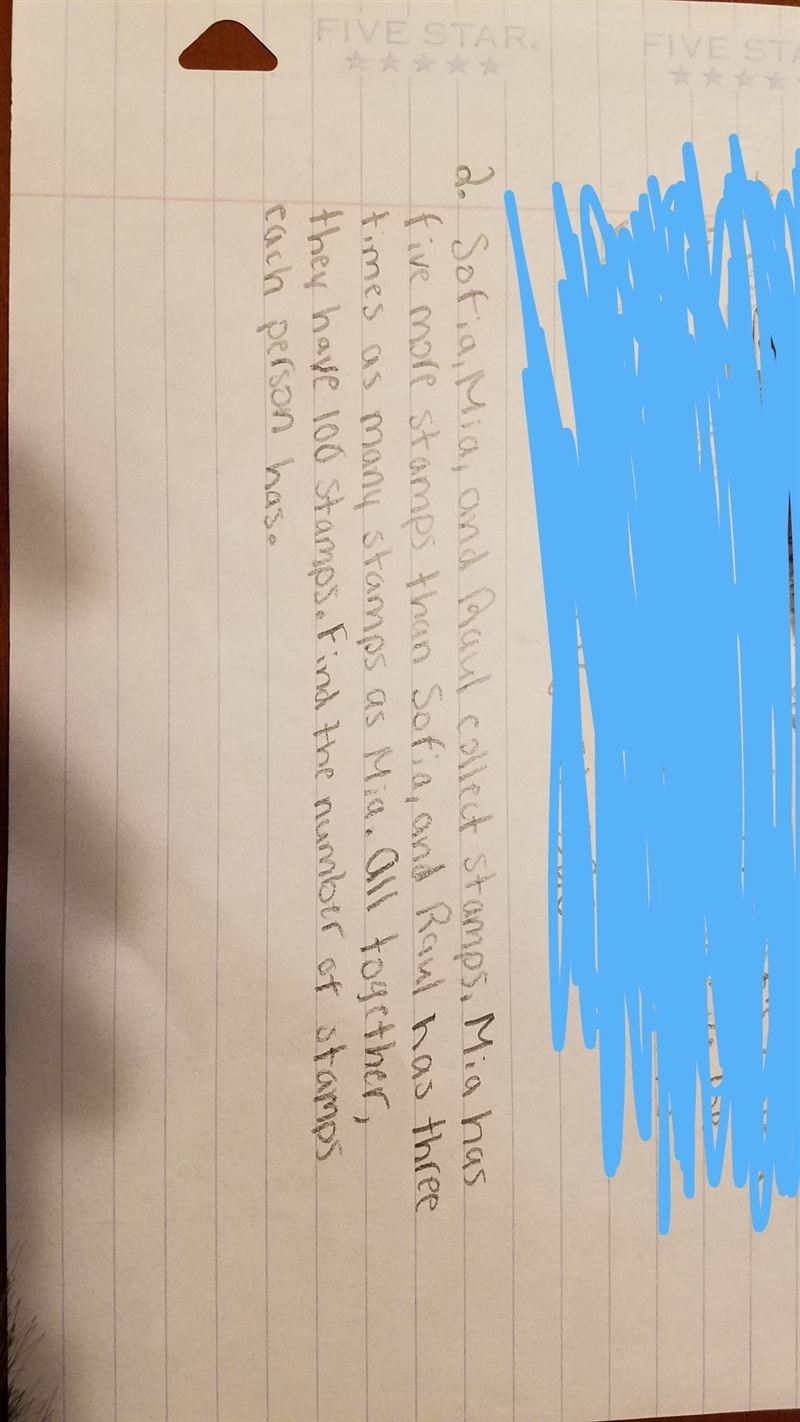 FIVE STAR.
FIVE STA
2. Sofia, Mia, and Raul collect stamps. Mia has
five more stamps than Sofia, and Raul has three
times as many stamps as Mia. All together,
they have 100 stamps. Find the number of stamps
each person has.